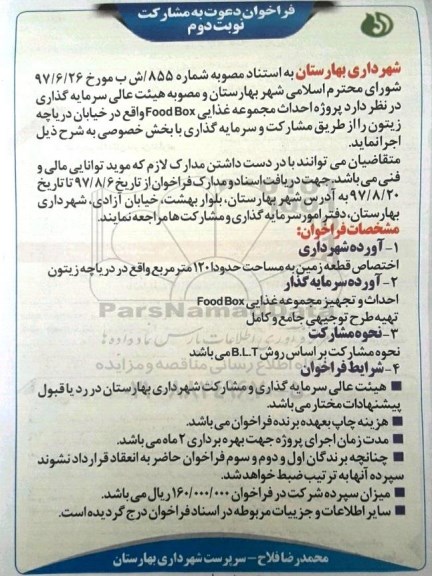 فراخوان دعوت به مشارکت
نوبت دوم
شهرداری بهارستان به استناد مصوبه شماره ۸۵۵/ش ب مورخ ۹۷/۶/۲۶
شورای محترم اسلامی شهر بهارستان و مصوبه هیئت عالی سرمایه گذاری
در نظر دارد پروژه احداث مجموعه غذایی Food Box واقع در خیابان دریاچه
زیتون را از طریق مشارکت و سرمایه گذاری با بخش خصوصی به شرح ذیل
اجرا نماید.
متقاضیان می توانند با در دست داشتن مدارک لازم که موید توانایی مالی و
فنی می باشد، جهت دریافت اسناد و مدارک فراخوان از تاریخ ۹۷/۸/۶ تا تاریخ
۹۷/۸/۲۰ به آدرس شهر بهارستان، بلوار بهشت، خیابان آزادی، شهرداری
بهارستان، دفتر امور سرمایه گذاری و مشارکت ها مراجعه نمایند.
مشخصات فراخوان:
۱- آورده شهرداری
اختصاص قطعه زمین به مساحت حدودا ۱۲۰ متر مربع واقع در دریاچه زیتون
۲- آورده سرمایه گذار
احداث و تجهیز مجموعه غذایی Food Box
تهیه طرح توجیهی جامع و کامل
۳- نحوه مشارکت
نحوه مشارکت بر اساس روش B.L.T می باشد
۴- شرایط فراخوان
■ هیئت عالی سرمایه گذاری و مشارکت شهرداری بهارستان در رد یا قبول
پیشنهادات مختار می باشد.
■ هزینه چاپ بعهده برنده فراخوان می باشد.
■ مدت زمان اجرای پروژه جهت بهره برداری ۲ ماه می باشد.
■ چنانچه برندگان اول و دوم و سوم فراخوان حاضر به انعقاد قرارداد نشوند
سپرده آنها به ترتیب ضبط خواهد شد.
■ میزان سپرده شرکت در فراخوان ۱۶۰/۰۰۰/۰۰۰ ریال می باشد.
■ سایر اطلاعات و جزییات مربوطه در اسناد فراخوان درج گردیده است.
محمدرضا فلاح - سرپرست شهرداری بهارستان